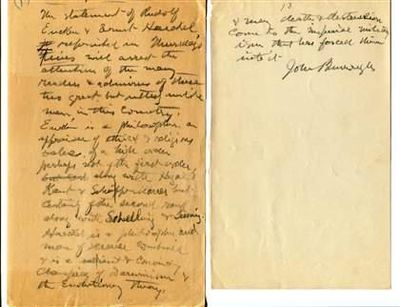 The statement of Rudolf
Eucken & Ernst Haeckel
reprinted in Thursday's
Times will arrest the
attention of the many
readers & admirers of these
two great but
men in this Country.
Eucken is a philosopher an
appraiser of ethical & religious
values of a high order
perhaps not of the first order
along with Hegel
Kant & Schopenhauer but
certainly of the second rank
along with Schelling &
Haeckel is a philosopher and
man of science combined
& is a radical &
champion of Darwinism &
the Evolutionary theory.
13
& may death & destruction
come to the imperial military
that has forced them
into it.
John Burroughs